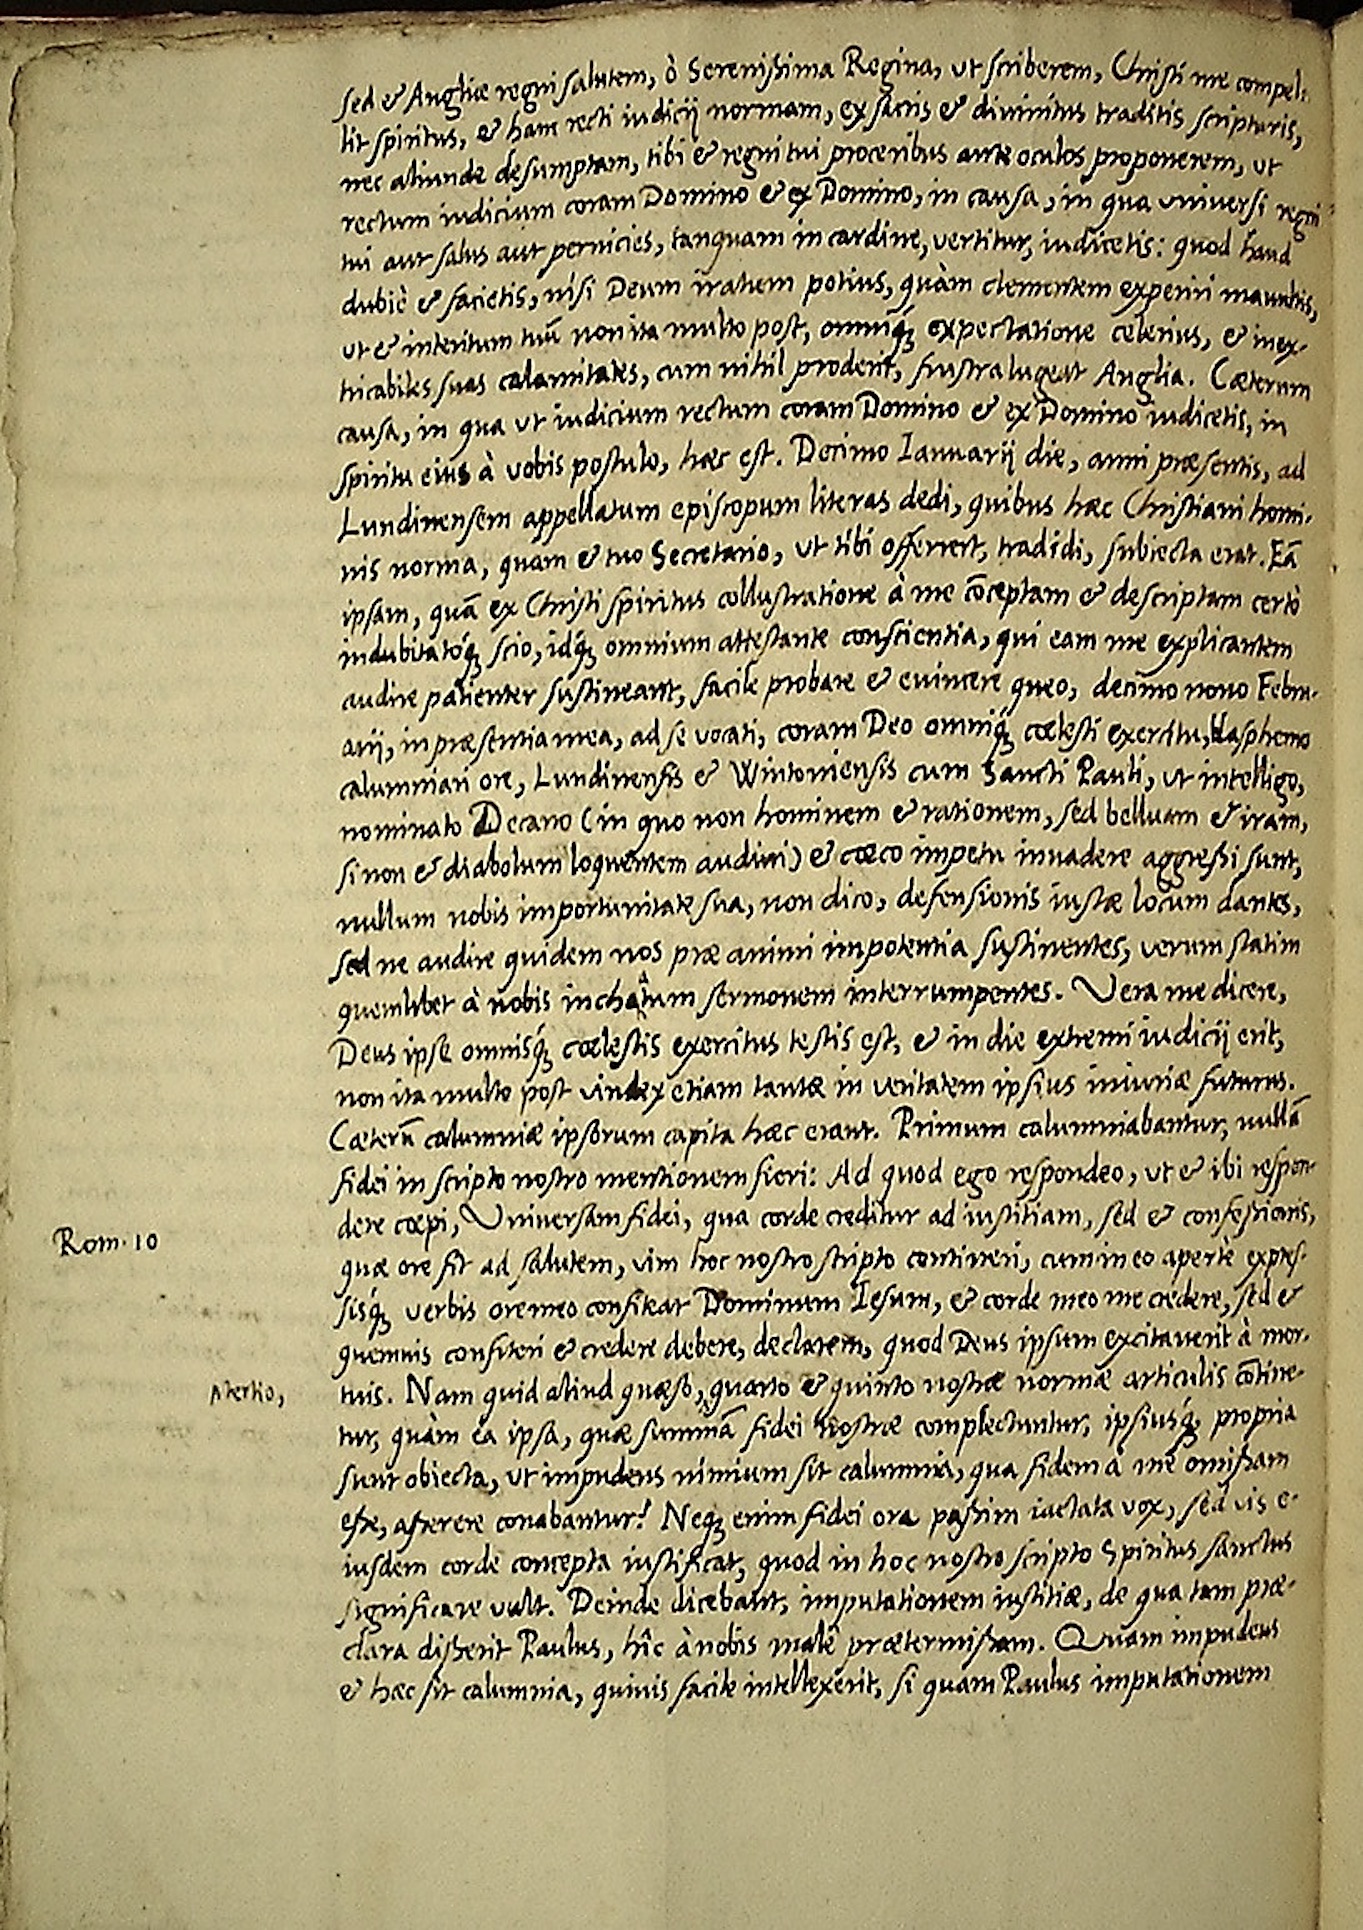 sed & Angliæ regni salutem, ò Serenißima Regina, ut scriberem, Christi me compel-
lit spiritus, & hanc recti iudicij normam, ex sacris & divinitus traditis scripturis,
nec aliunde desumptam, tibi & regni tui proceribus ante oculos proponerem, ut
rectum iudicium coram Domino & ex Domino, in causa, in qua universi regni
tui aut salus aut pernicies, tanquam in cardine, vertitur, iudicetis: quod haud
dubiè & facietis, nisi Deum iratum potius, quàm clementem experiri mavultis,
ut & interitum tuũ non ita multo post, omniq́ꝫ expectatione celerius, & inex-
tricabiles suas calamitates, cum nihil proderit, frustra lugeat Anglia. Cæterum
causa, in qua ut iudicium rectum coram Domino & ex Domino iudicetis, in
spiritu eius à vobis postulo, hæc est. Decimo Ianuarij die, anni præsentis, ad
Lundinensem appellatum episcopum literas dedi, quibus hæc Christiani homi-
nis norma, quam & tuo Secretario, ut tibi offerret, tradidi, subiecta erat. Eã
ipsam, quã ex Christi spiritus collustratione à me cõceptam & descriptam certò
indubitatóq́ꝫ scio, idq́ꝫ omnium attestante conscientia, qui eam me explicantem
audire patienter sustineant, facile probare & evincere queo, decimo nono Febru-
arij, in præsentia mea, ad se vocati, coram Deo omniq́ꝫ cœlesti exercitu, blasphemo
calumniari ore, Lundinensis & Wintoniensis cum Sancti Pauli, ut intelligo,
nominato Decano (in quo non hominem & rationem, sed belluam & iram,
si non & diabolum loquentem audivi) & cœco impetu invadere aggreßi sunt,
nullum nobis importunitate sua, non dico, defensionis iustæ locum dantes,
sed ne audire quidem nos præ animi impotentia sustinentes, verum statim
quemlibet à nobis inchoatum sermonem interrumpentes. Vera me dicere,
Deus ipse omnisq́ꝫ cœlestis exercitus testis est, & in die extremi iudicij erit,
non ita multo post vindex etiam tantæ in veritatem ipsius iniuriæ futurus.
Cæterũ calumniæ ipsorum capita hæc erant. Primum calumniabantur, nullã
fidei in scripto nostro mentionem fieri: Ad quod ego respondeo, ut & ibi respon-
dere cœpi, Universam fidei, qua corde creditur ad iustitiam, sed & confeßionis,
Rom. 10
quæ ore fit ad salutem, vim hoc nostro scripto contineri, cum in eo apertè expres-
sisq́ꝫ verbis ore meo confitear Dominum Iesum, & corde meo me credere, sed &
quemvis confiteri & credere debere, declarem, quod Deus ipsum excitaverit à mor-
tuis. Nam quid aliud quæso, quarto & quinto nostræ normæ articulis cõtine-
A tertio,
tur, quàm ea ipsa, quæ summã fidei nostræ complectuntur, ipsiusq́ꝫ propria
sunt obiecta, ut impudens nimium sit calumnia, qua fidem à me omißam
eße, aßerere conabantur? Neqꝫ enim fidei ora paßim iactata vox, sed vis e-
iusdem corde concepta iustificat, quod in hoc nostro scripto Spiritus sanctus
significare vult. Deinde dicebant, imputationem iustitiæ, de qua tam præ-
clara dißerit Paulus, hîc à nobis malè prætermißam. Quam impudens
& hæc sit calumnia, quivis facile intellexerit, si quam Paulus imputationem